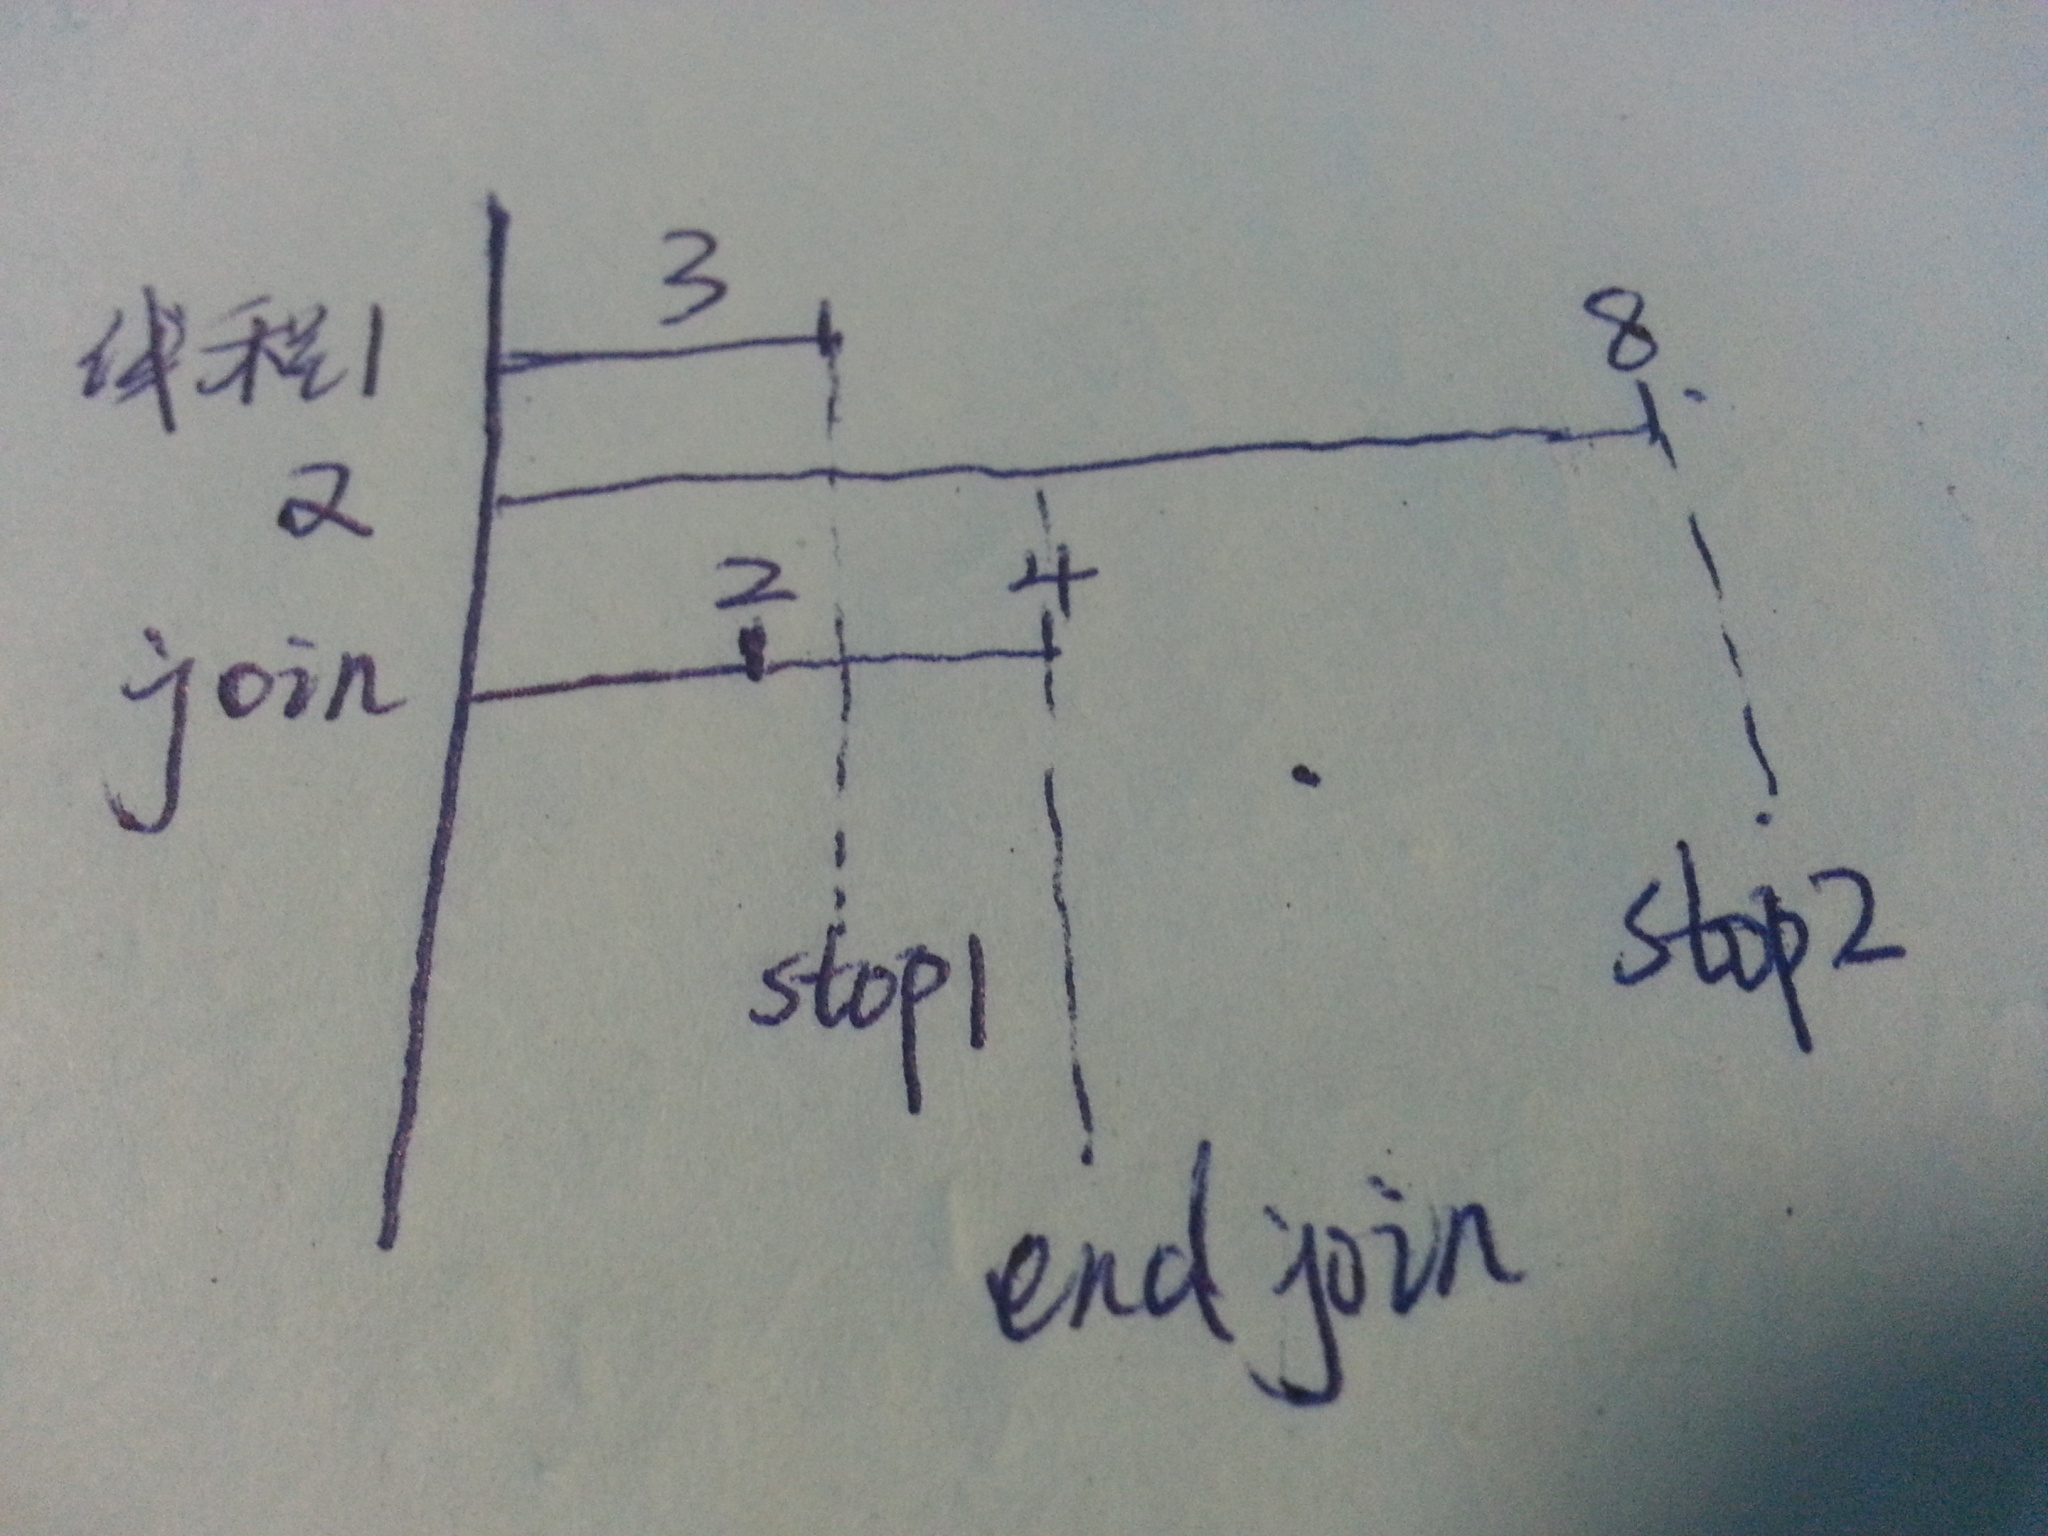 3
线程1
8
2
2
4
join
stop1
stop2
end join